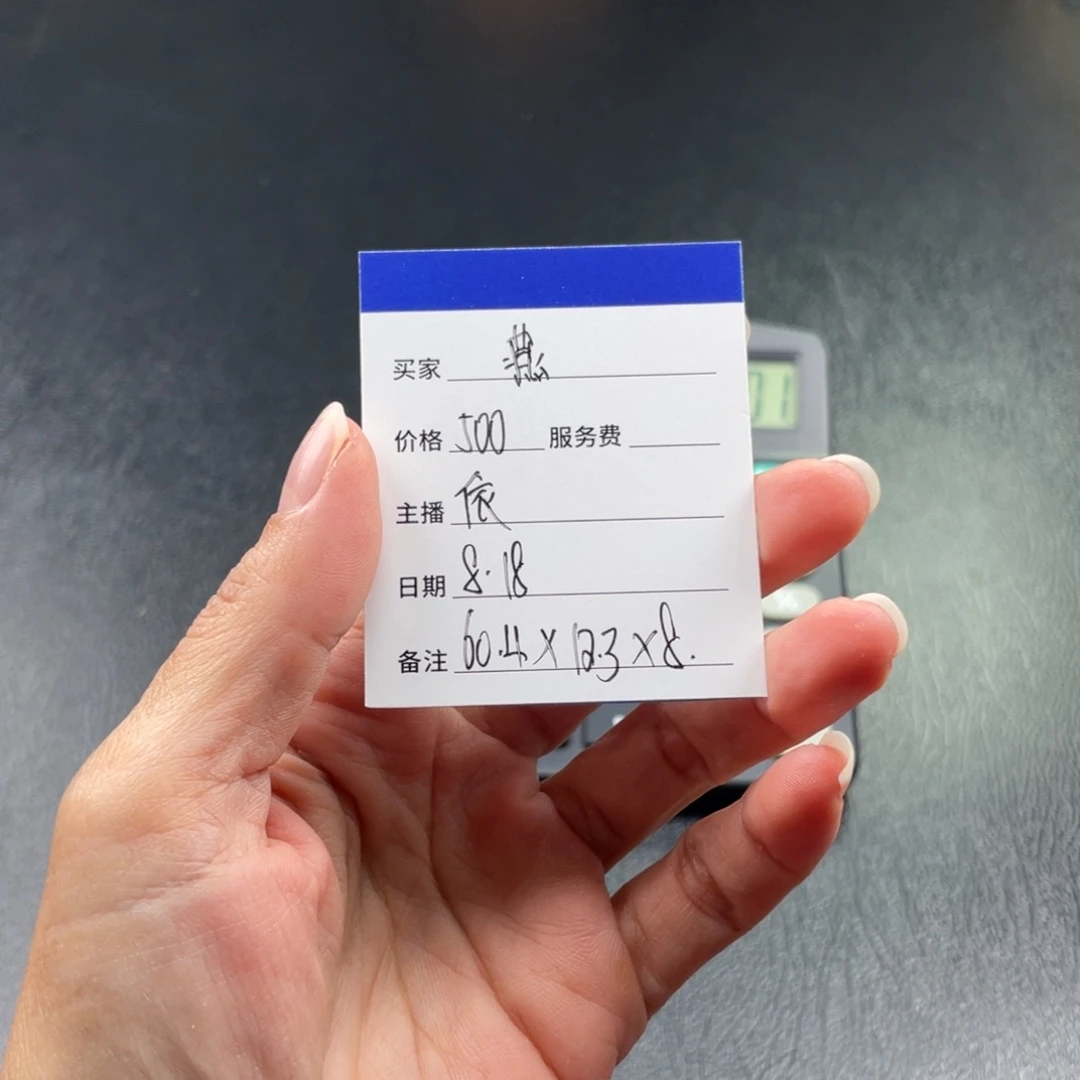 买家
价格 500 服务费
主播 依
日期 8.18
备注 60.4×12.3×8.
01